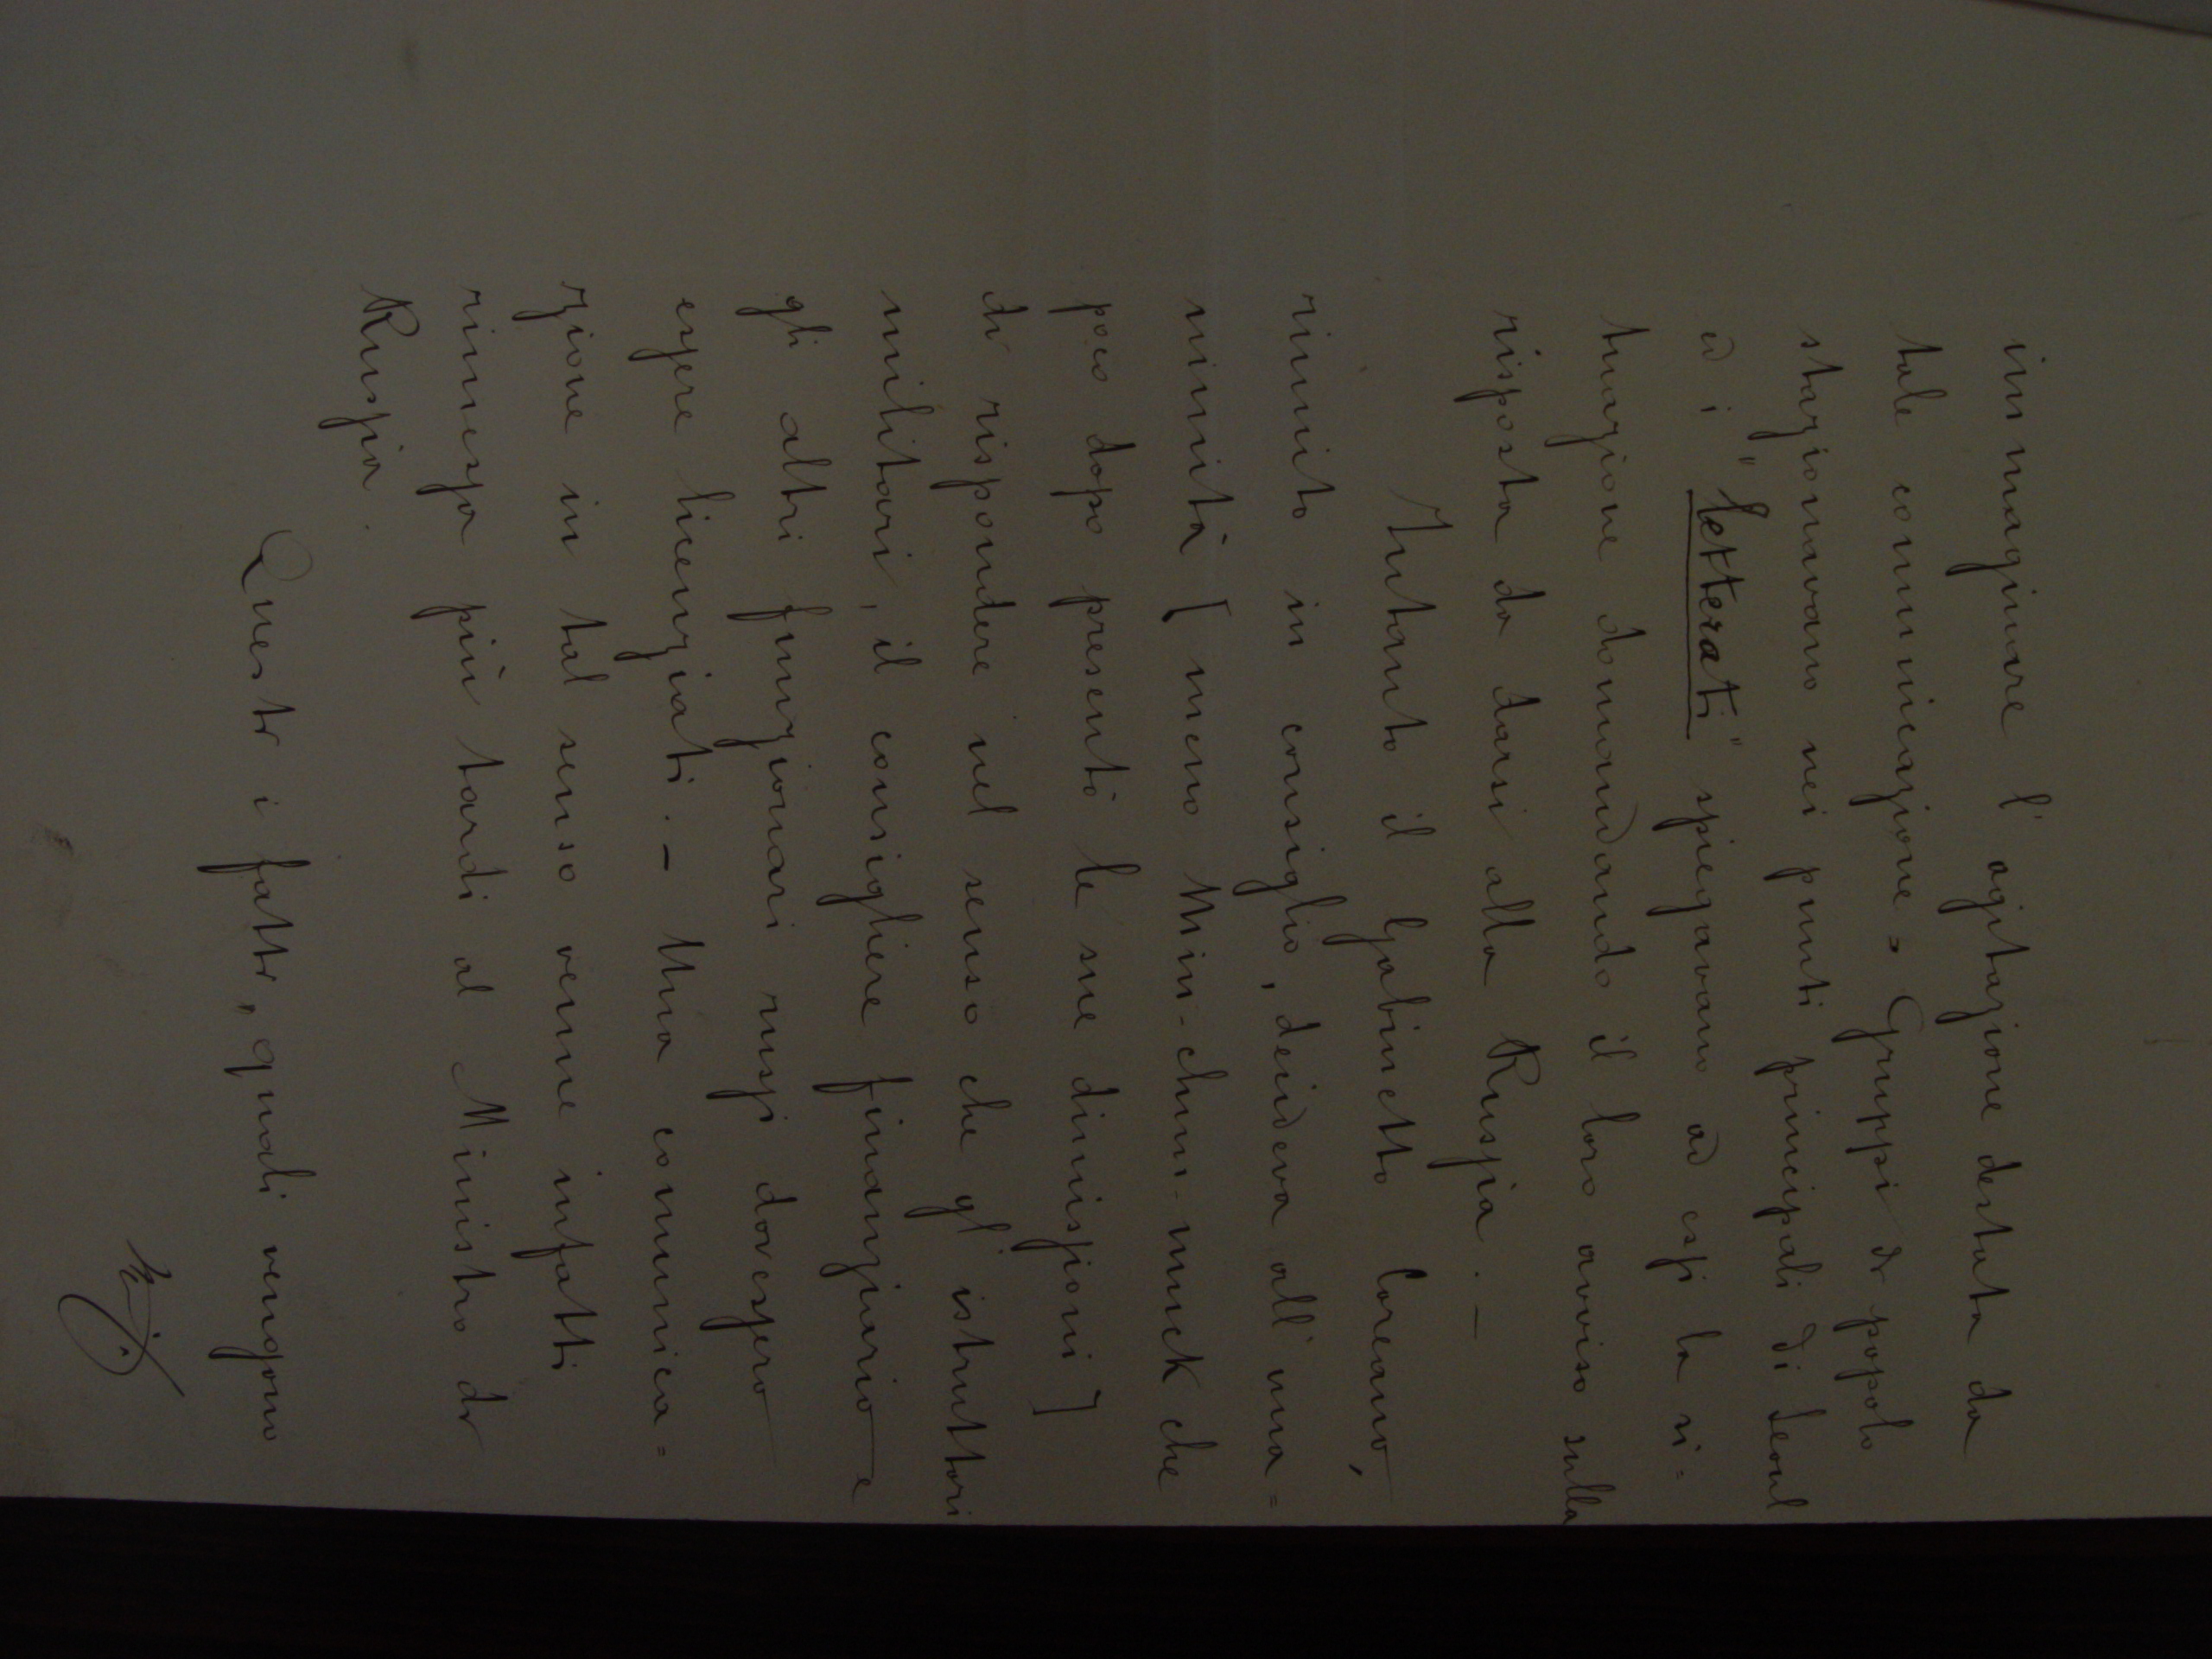 immaginare l'agitazione destata da
tale comunicazione. Gruppi di popolo
stazionavano nei punti principali di Seoul
ed i "letterati" spiegavano ad essi la si=
tuazione domandando il loro avviso sulla
risposta da darsi alla Russia. —
Intanto il Gabinetto Coreano,
riunito in consiglio, decideva all'una=
nimità [meno Min-chun-muck che
poco dopo presentò le sue dimissioni]
di rispondere nel senso che gl'istruttori
militari, il consigliere finanziario e
gli altri funzionari russi dovessero
essere licenziati. — Una comunica=
zione in tal senso venne infatti
rimessa più tardi al Ministro di
Russia.
Questi i fatti, quali vengono